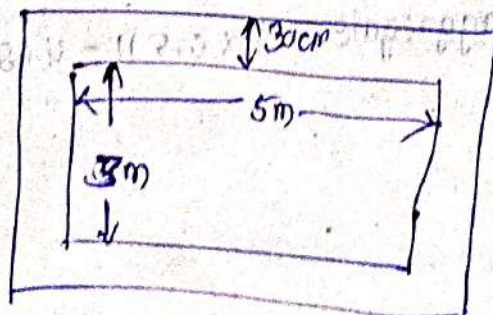 30cm
5m
3m